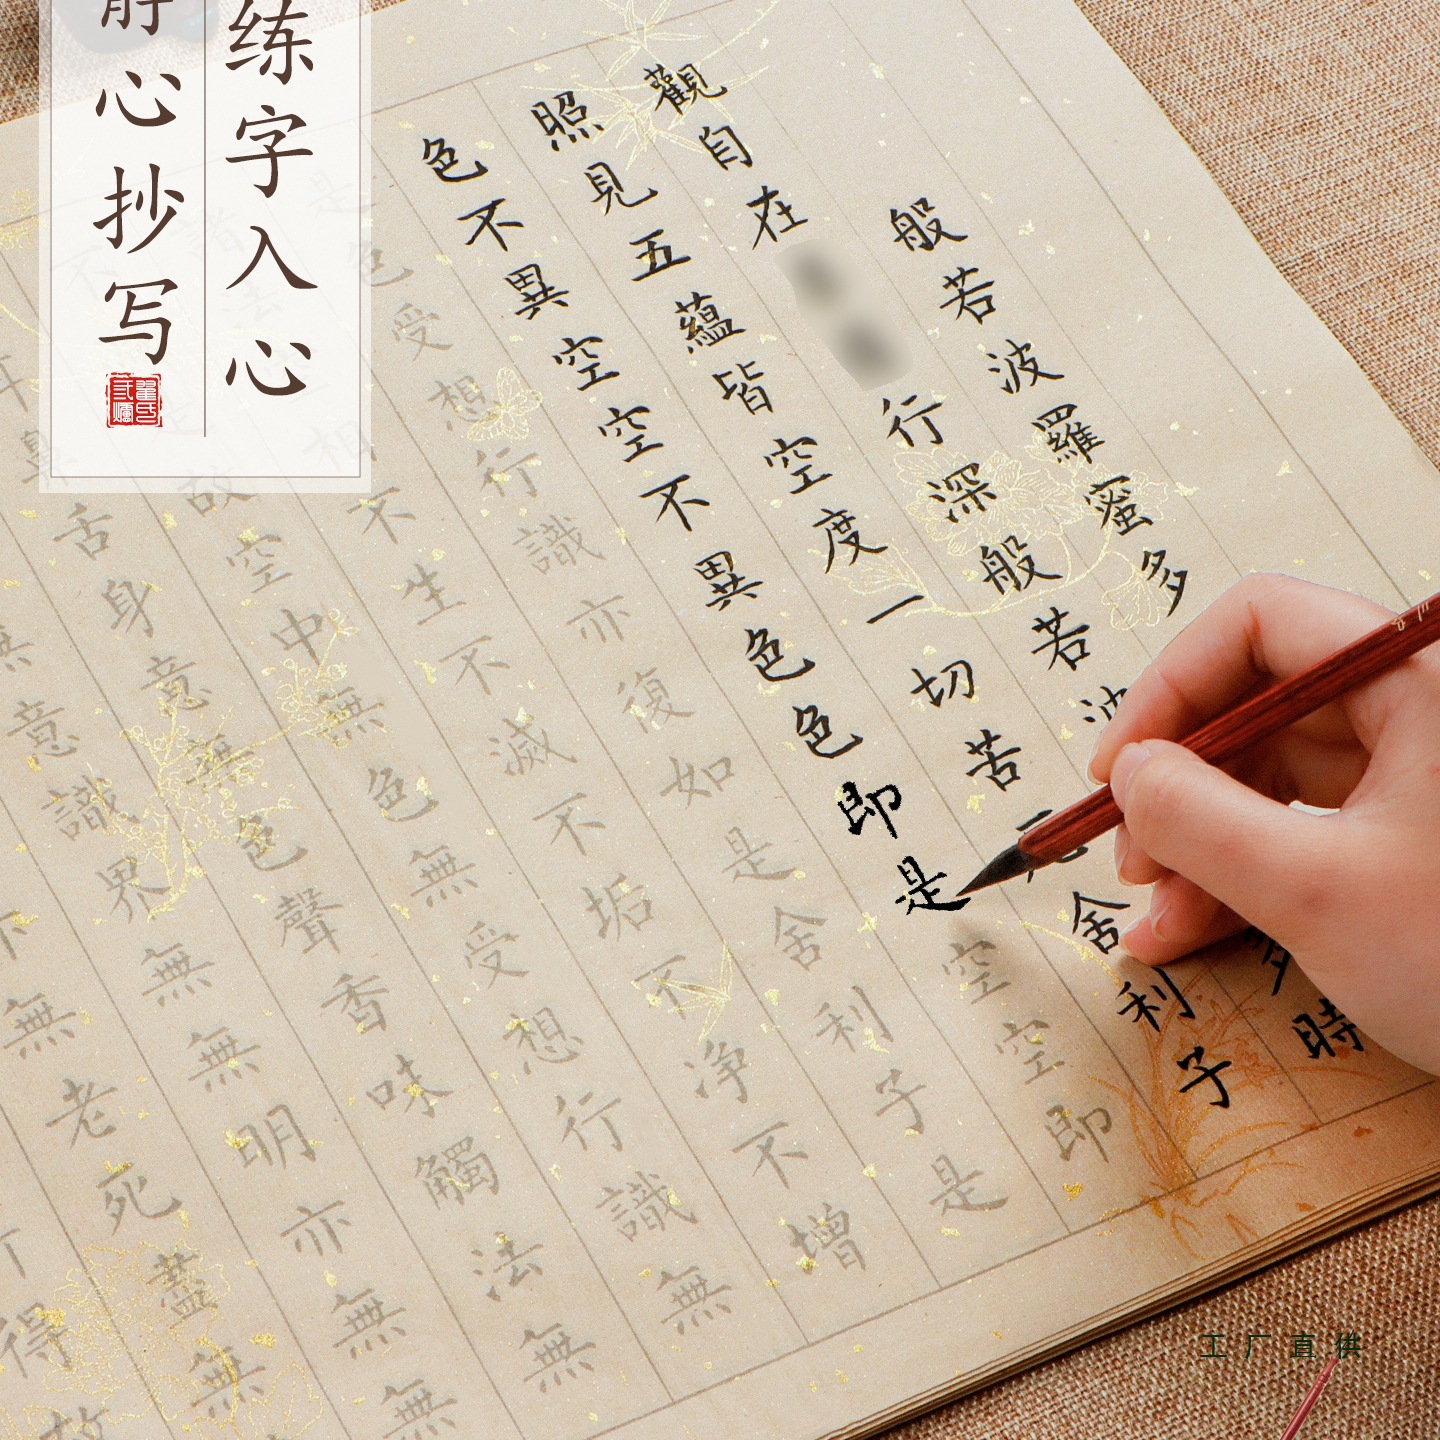 练字入心
心抄写
般若波羅蜜多
觀自在
行深般若波
多時
照見五蘊皆空度一切苦
舍利子
色不異空空不異色色即是空空即
是色受想行識亦復如是舍利子是
相不生不滅不垢不淨不增
故空中無色無受想行識無
鼻舌身意無色聲香味觸法無
無意識界無無明亦無無
無老死盡無
得故
工厂直供